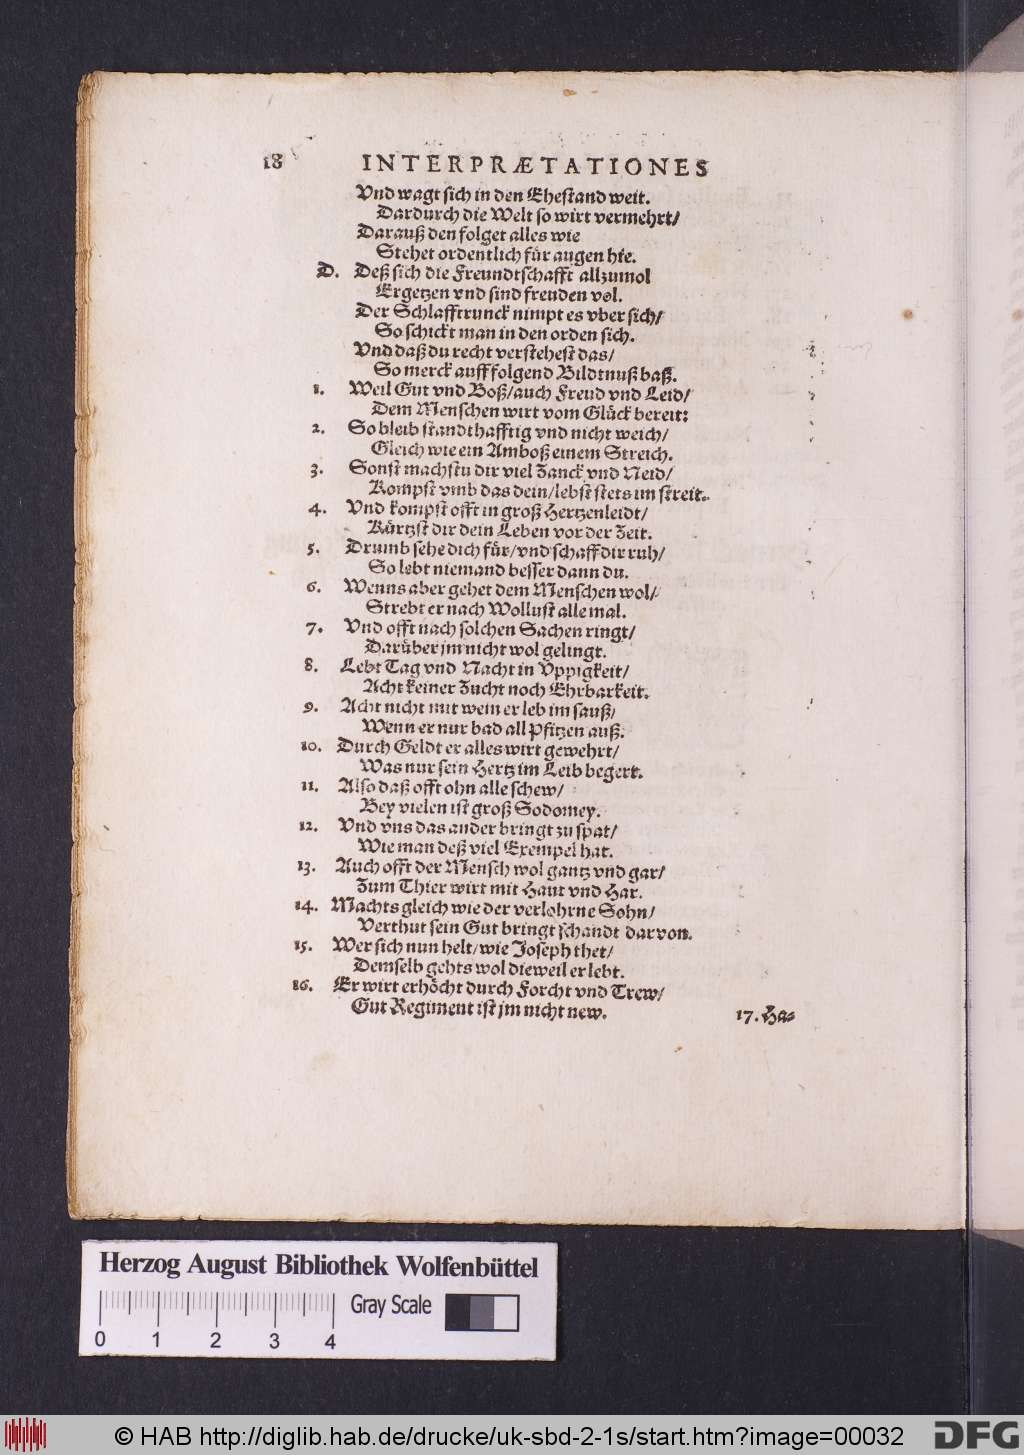 18 INTERPRÆTATIONES
Vnd wagt sich in den Ehestand weit.
Dardurch die Welt so wirt vermehrt/
Darauß den folget alles wie
Stehet ordentlich für augen hie.
D. Deß sich die Freundtschafft allzumol
Ergetzen vnd sind freuden vol.
Der Schlafftrunck nimpt es vber sich/
So schickt man in den orden sich.
Vnd daß du recht verstehest das/
So merck auff folgend Bildtnuß baß.
1. Weil Gut vnd Boß/auch Freud vnd Leid/
Dem Menschen wirt vom Glück bereit:
2. So bleib standthafftig vnd nicht weich/
Gleich wie ein Amboß einem Streich.
3. Sonst machstu dir viel Zanck vnd Neid/
Kompst vmb das dein/lebst stets im streit.
4. Vnd kompst offt in groß Hertzenleidt/
Kürtzst dir dein Leben vor der Zeit.
5. Drumb sehe dich für/vnd schaff dir ruh/
So lebt niemand besser dann du.
6. Wenns aber gehet dem Menschen wol/
Strebt er nach Wollust alle mal.
7. Vnd offt nach solchen Sachen ringt/
Darüber jm nicht wol gelingt.
8. Lebt Tag vnd Nacht in Vppigkeit/
Acht keiner Zucht noch Ehrbarkeit.
9. Acht nicht mit wem er leb im sauß/
Wenn er nur bad all Pfitzen auß.
10. Durch Geldt er alles wirt gewehrt/
Was nur sein Hertz im Leib begert.
11. Also daß offt ohn alle schew/
Bey vielen ist groß Sodomey.
12. Vnd vns das ander bringt zu spat/
Wie man deß viel Exempel hat.
13. Auch offt der Mensch wol gantz vnd gar/
Zum Thier wirt mit Haut vnd Har.
14. Machts gleich wie der verlohrne Sohn/
Verthut sein Gut bringt schandt darvon.
15. Wer sich nun helt/wie Joseph thet/
Demselb gehts wol dieweil er lebt.
16. Er wirt erhöcht durch Forcht vnd Trew/
Gut Regiment ist jm nicht new.
17. Ha-
Herzog August Bibliothek Wolfenbüttel
0 1 2 3 4 Gray Scale
© HAB http://diglib.hab.de/drucke/uk-sbd-2-1s/start.htm?image=00032 DFG